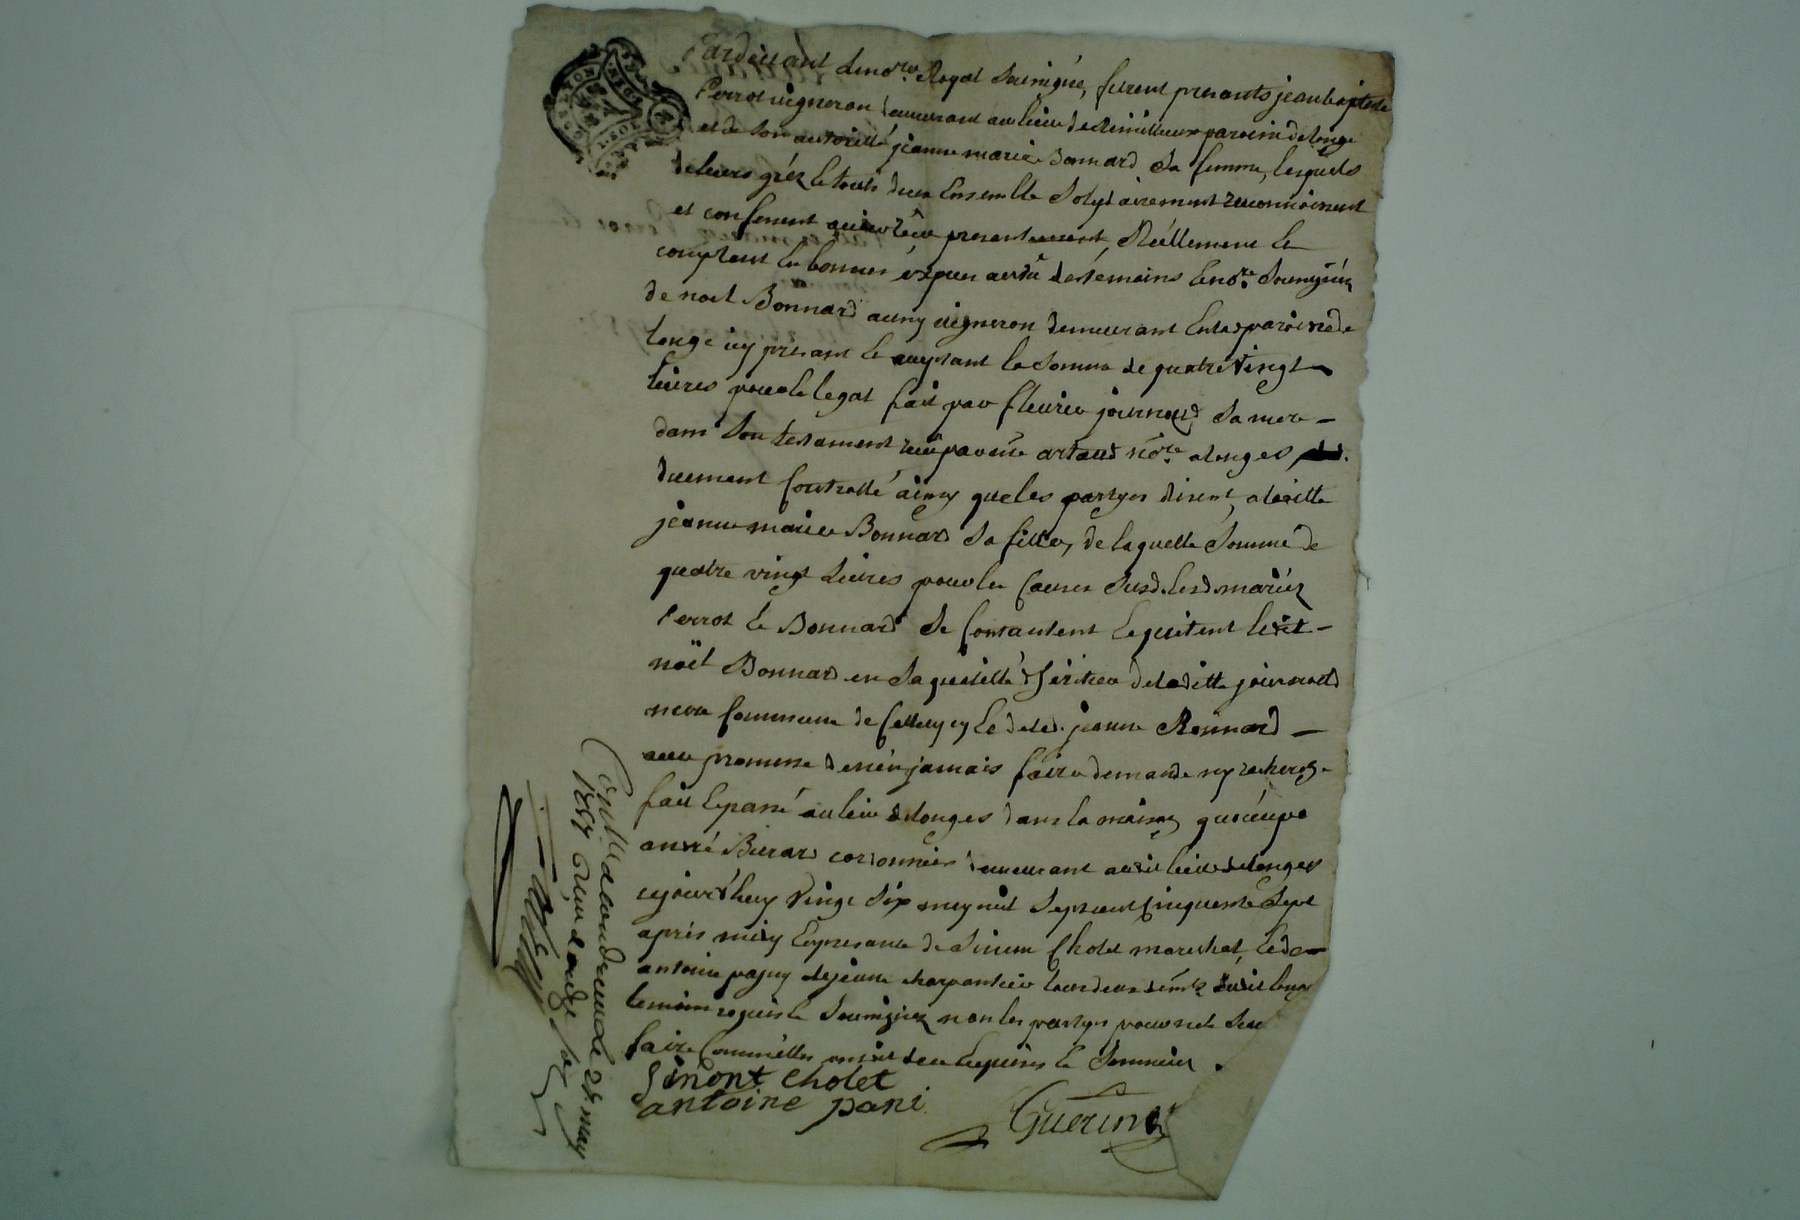 Pardevant le no.re Royal Sousigné, furent presants jean baptiste
Perrot vigneron demeurant au lieu de paroisse de longe
et de son autorité jeanne marie Bonnard Sa femme, lesquels
de leurs gréz le touts deux Ensemble Solydairement reconnoissent
et confessent avoir reçu presentement, Réellement Et
comptant En bonnes éspeces a veüe des témoins Le no.re Sousignéz
de noel Bonnard aussy vigneron demeurant En la paroisse de
longe icy presant le acceptant la Somme de quatre Vingt
livres pour le legat fait par fleurie journoud Sa mere
dans Son testament reçu par me artaud no.re a longes
duement Controllé ainsy que les partyes disent, a laditte
jeanne marie Bonnard Sa fille, de laquelle Somme de
quatre vingt Livres pour les Causes Susd. lesd. mariéz
Perrot Et Bonnard Se Contantent Et quittent ledit
noël Bonnard en Sa qualitté d'héritier de laditte journoud
mere Commune de Celluy cy Et de lad. jeanne Bonnard
avec promesse de n'en jamais faire demande ny recherche
fait Et passé au lieu de longes dans la maison qu'occupe
andré Burard cordonnier demeurant audit lieu de longes
cejourd'huy Vingt Six may mil Sept cent Cinquante Sept
après midy En presance de Simon Cholet marechal, Et de
antoine pagny le jeune charpantier tous deux dem.ts audit longe
temoins requis Et Sousignéz non les partyes pour ne le Sca
faire Comme elles ont dit de ce Enquises Et Sommées.
Simont Cholet
antoine pani
Guerin
Con.lle a Condrieu le 28 may
1757 Reçu douze s.